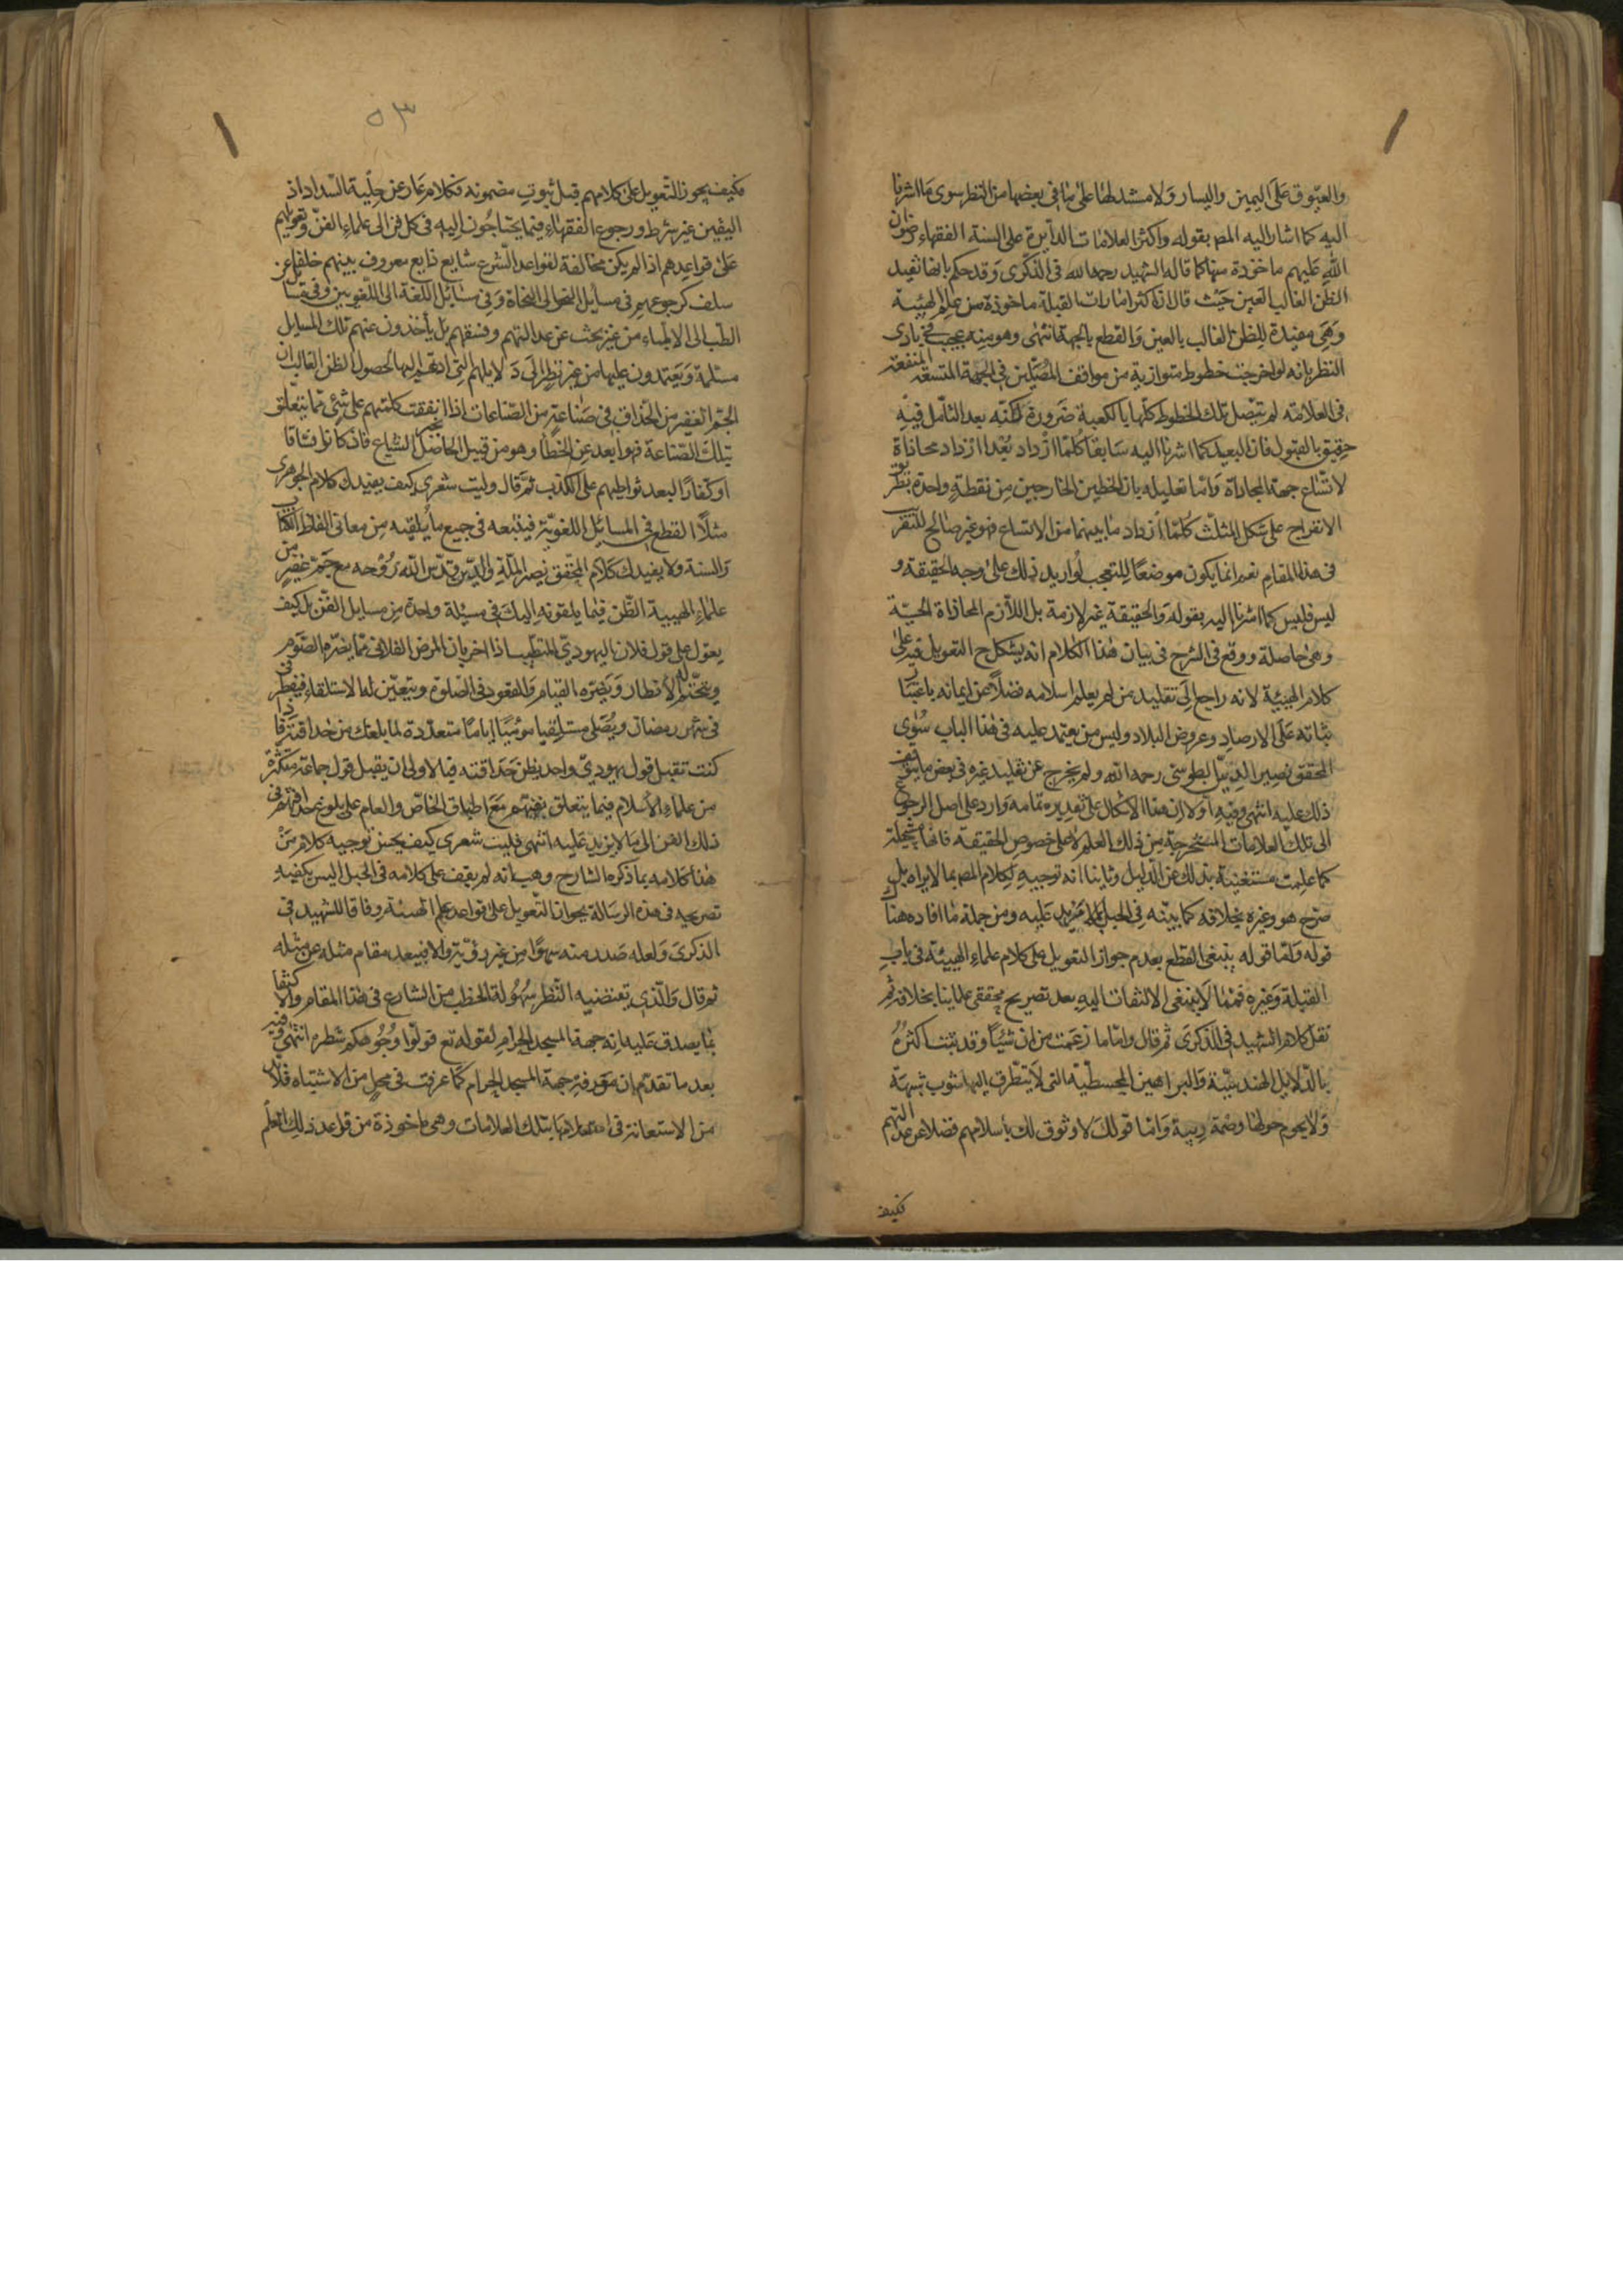 والعيّوق على اليمين واليسار ولا مشد لها على ما في بعضها من النظر سوى ما اشرنا
اليه كما اشار اليه المص بقوله واكثر العلامات الدايرة على السنة الفقهاء رضوان
الله عليهم ماخوذة منها كما قاله الشهيد رحمه الله في الذكرى وقد حكم بانها تفيد
الظن الغالب بالعين حيث قال ان اكثر امارات القبلة ماخوذة من علم الهيئة
وهي مفيدة للظن الغالب بالعين والقطع بالجهة انتهى وهو منه عجب في بادى
النظر بانه لو اخرجت خطوط متوازية من مواقف المصلين في الجهة المتسعة المنفعة
في العلامة لم تتصل تلك الخطوط كلها بالكعبة ضرورة لكنه بعد التأمل فيه
حقيق بالقبول فان البعيد كما اشرنا اليه سابقا كلما ازداد بُعدا ازداد محاذاة
لاتساع جهة المحاذاة واما تعليله بان الخطين الخارجين من نقطة واحدة بطور
الانفراج على شكل المثلث كلما ازداد ما بينهما من الاتساع فهو غير صالح للتقر
في هذا المقام نعم انما يكون موضعا للتعجب لو اريد ذلك على وجه الحقيقة و
ليس فليس كما اشرنا اليه بقوله والحقيقة غير لازمة بل اللازم المحاذاة الحسية
وهي حاصلة ووقع في الشرح في بيان هذا الكلام انه يشكل ح التعويل فيه على
كلام الهيئة لانه راجع الى تقليد من لم يعلم اسلامه فضلا عن ايمانه باعتبار
بنائه على الارصاد وعروض البلاد وليس من يعتمد عليه في هذا الباب سوى
المحقق نصير الدين الطوسى رحمه الله ولم يخرج عن تقليد غيره في بعض ما يتوقف
ذلك عليه انتهى وفيه اولا ان هذا الاشكال على تقديره تمامه وارد على اصل الرجوع
الى تلك العلامات المستخرجة من ذلك العلم لا على خصوص الحقيقة فانها
كما علمت مستغنية بذلك عن الدليل وثانيا انه توجيه لكلام المص بما لا يراه بل
صرح هو وغيره بخلافه كما بينه في الحبل بما لا مزيد عليه ومن جملة ما افاده هناك
قوله واما قوله ينبغى القطع بعدم جواز التعويل على كلام علماء الهيئة في باب
القبلة وغيره فمما لا ينبغى الالتفات اليه بعد تصريح محققى علماينا بخلافه ثم
نقل كلام الشهيد في الذكرى ثم قال واما ما زعمت من ان شيئا وقد يثبت اكثره
بالدلايل الهندسية والبراهين المجسطية التى لا يتطرق اليها شوب شبهة
ولا يحوم حولها وصمة ريبة واما قولك لا وثوق لك باسلامهم فضلا عن عدالتهم
فكيف
٥٣
فكيف يجوز التعويل على كلامهم قبل ثبوت مضمونه فكلام عار عن حلية السداد اذ
اليقين غير شرط ورجوع الفقهاء فيما يحتاجون اليه في كل فن الى علماء الفن وتعويلهم
على قواعدهم اذا لم يكن مخالفة لقواعد الشرع شايع ذايع معروف بينهم خلفا عن
سلف كرجوعهم في مسايل النحو الى النحاة وفي مسائل اللغة الى اللغويين وفي مسا
الطب الى الاطباء من غير بحث عن عدالتهم وفسقهم بل يأخذون عنهم تلك المسايل
مسلمة ويعتمدون عليها من غير نظر الى دلايلهم التى ادعت اليها لحصول الظن الغالب بان
الجم الغفير من الحذاق في صناعة من الصناعات اذا اتفقت كلمتهم على شئ مما يتعلق
بتلك الصناعة فهو ابعد عن الخطأ وهو من قبيل الحاصل الشياع فان كانوا فساقا
او كفارا لبعد تواطيهم على الكذب ثم قال وليت شعرى كيف يفيدك كلام الجوهرى
مثلا القطع في المسائل اللغوية فيتبعه في جميع ما يلقيه من معانى الفاظ الكتاب
والسنة ولا يفيدك كلام المحقق نصير الملة والدين قدس الله روحه مع جم غفير من
علماء الهيئة الظن فيما يلقونه اليك في مسئلة واحدة من مسايل الفن بل كيف
يعول على قول فلان اليهودى المتطبب اذا اخر بان المرض الفلانى مما يضره الصوم
ويتحتم له الافطار ويضره القيام والقعود في الصلوة ويتعين لها الاستلقاء فيفطر في
في شهر رمضان ويصلى مستلقيا موميا اياما متعددة لما بلغك من حذاقته فاذا
كنت تقبل قول يهودى واحد بظن حذاقته فبالاولى ان يقبل قول جماعة متكثرة
من علماء الاسلام فيما يتعلق بفنهم مع اطباق الخاص والعام على بلوغ حذاقتهم في
ذلك الفن الى ما لا مزيد عليه انتهى فليت شعرى كيف يحسن توجيه كلام من
هذا كلامه بما ذكره الشارح وهب انه لم يقف على كلامه في الحبل اليس يكفيه
تصريحه في هذه الرسالة بجواز التعويل على قواعد علم الهيئة وفاقا للشهيد في
الذكرى ولعله صدر منه سهوا من غير رؤية والا فيبعد مقام مثله عن مثله
ثم قال والذى يقتضيه النظر سهولة الخطب من الشارع في هذا المقام والاكتفا
بما يصدق عليه انه جهة المسجد الحرام لقوله تع فولوا وجوهكم شطره انتهى وفيه
بعد ما تقدم ان معرفة جهة المسجد الحرام كما عرفت في محل من الاشتباه فلابد
من الاستعانة في استعلامها بتلك العلامات وهى ماخوذة من قواعد ذلك العلم